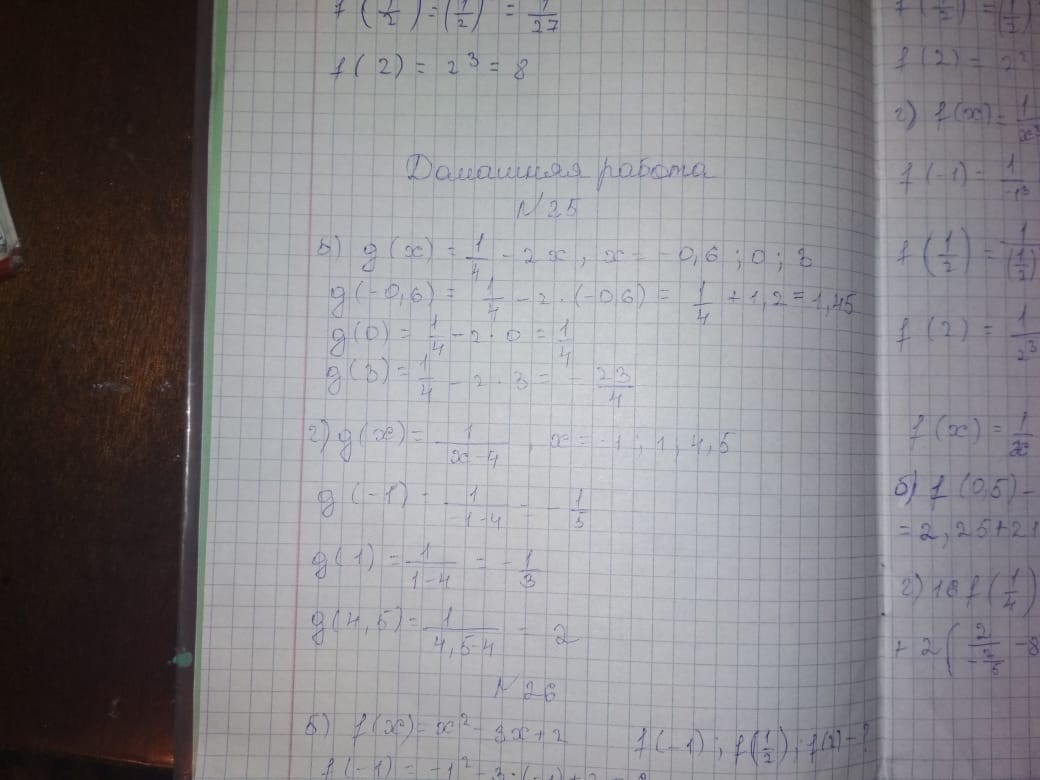 f(1/2) = (1/2) = 1/27
f(2) = 2³ = 8
Домашняя работа
N 25
б) g(x) = 1/4 - 2x, x = -0,6; 0; 3
g(-0,6) = 1/4 - 2·(-0,6) = 1/4 + 1,2 = 1,45
g(0) = 1/4 - 2·0 = 1/4
g(3) = 1/4 - 2·3 = -23/4
г) g(x) = 1/(x-4), x = -1; 1; 4,5
g(-1) = 1/(-1-4) = -1/5
g(1) = 1/(1-4) = -1/3
g(4,5) = 1/(4,5-4) = 2
N 26
б) f(x) = x² - 3x + 2 f(-1); f(1/2);
f(-1) = -1² - 3·(-1) + 2 =
f(2) =
г) f(x) = 1/x
f(-1) = 1/-1³
f(1/2) = 1/(1/2)
f(2) = 1/2³
f(x) = 1/x
б) f(0,5) -
= 2,25+21
г) 16f(1/4)